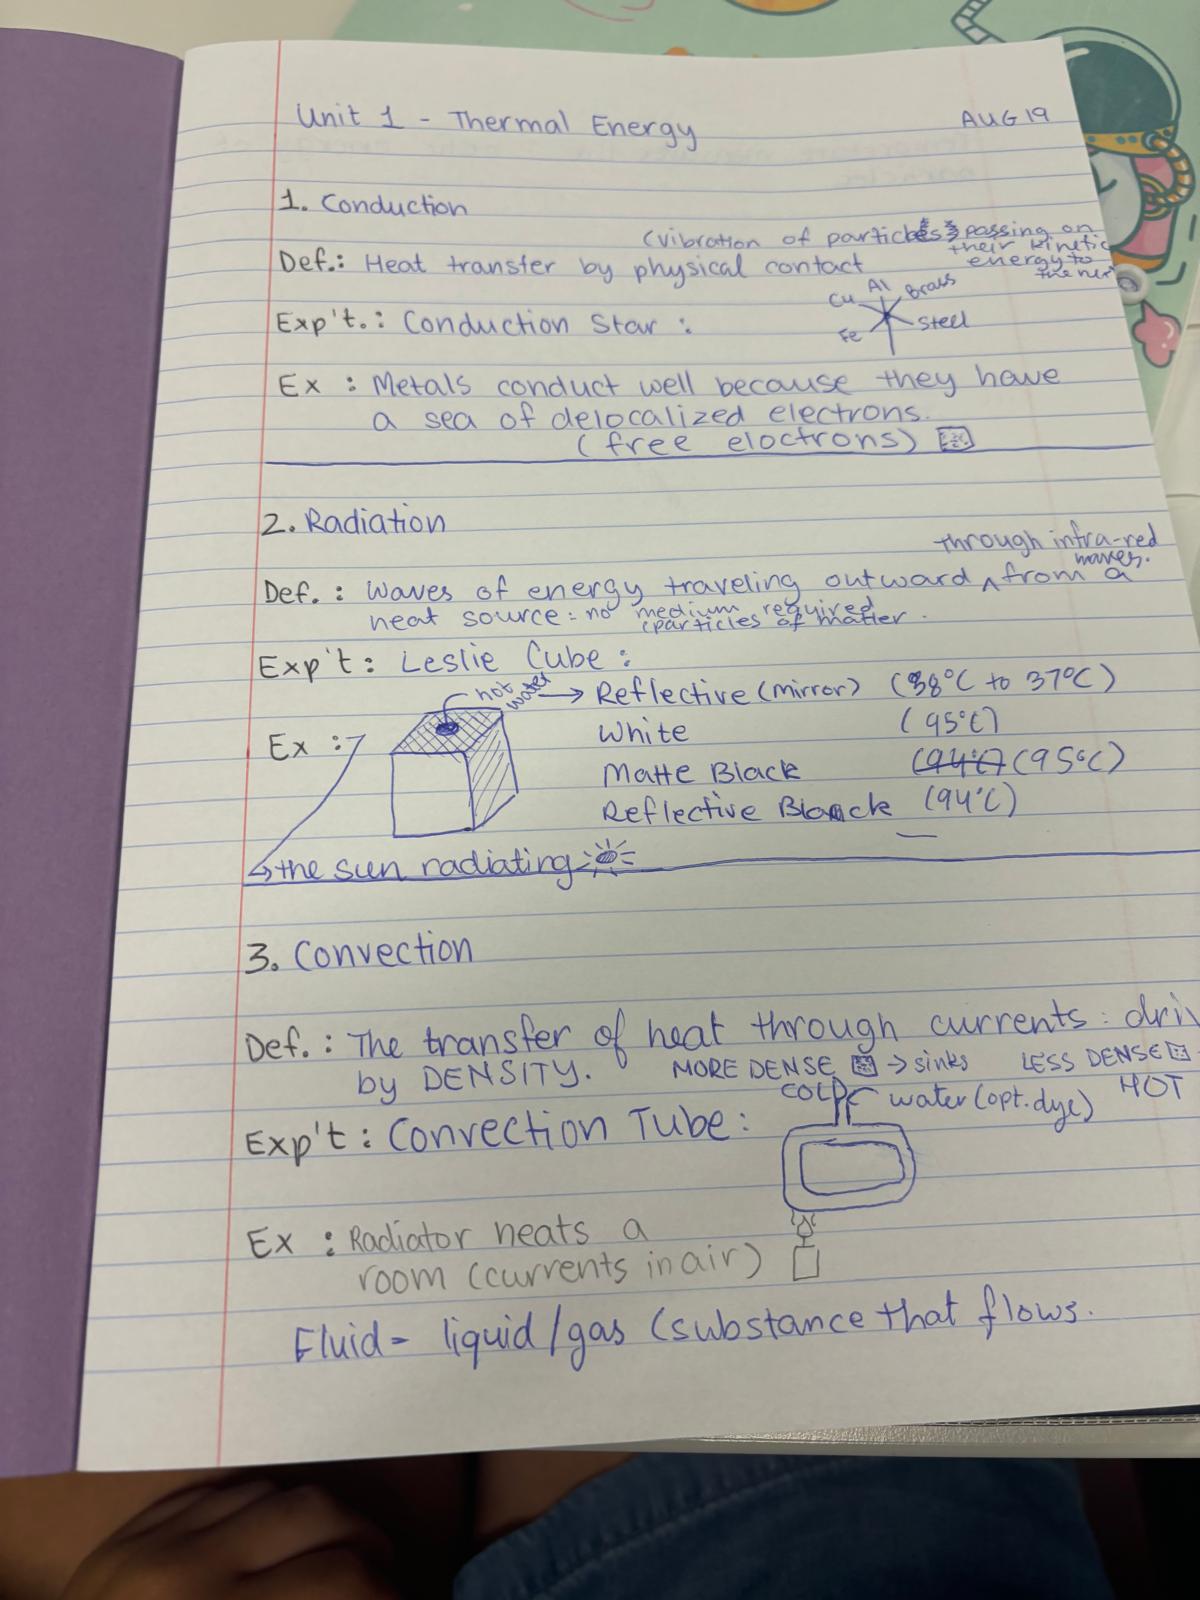 Unit 1 - Thermal Energy AUG 19
1. Conduction
(vibration of particles passing on
their kinetic
energy to
the nex
Def.: Heat transfer by physical contact
Cu Al Brass
Exp't.: Conduction Star:
Fe Steel
Ex : Metals conduct well because they have
a sea of delocalized electrons.
(free eloctrons)
2. Radiation
through infra-red
waves.
Def. : Waves of energy traveling outward ^ from a
heat source: no medium required
(particles of matter.
Exp't: Leslie Cube:
hot
water
→ Reflective (mirror) (38°C to 37°C)
Ex :
White (95°C)
Matte Black (94°C) (95°C)
Reflective Blanck (94°C)
↳ the sun radiating
3. Convection
Def. : The transfer of heat through currents: driv
by DENSITY. MORE DENSE → sinks LESS DENSE
COLD water (opt. dye) HOT
Exp't : Convection Tube:
Ex : Radiator heats a
room (currents in air)
Fluid = liquid/gas (substance that flows.